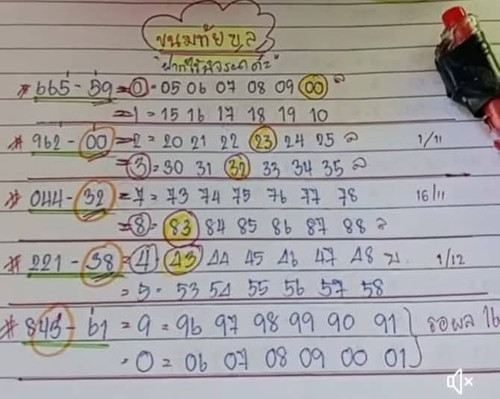 ขนมทัยพูล
"ฝากไว้พิจารณาค่ะ"
* 665 - 59 = 0 = 05 06 07 08 09 00 ล
= 1 = 15 16 17 18 19 10
* 962 - 00 = 2 = 20 21 22 23 24 25 ล 1/11
= 3 = 30 31 32 33 34 35 ล
* 044 - 32 = 7 = 73 74 75 76 77 78 16/11
= 8 = 83 84 85 86 87 88 ล
* 221 - 38 = 4 = 43 44 45 46 47 48 บ 1/12
= 5 = 53 54 55 56 57 58
* 843 - 61 = 9 = 96 97 98 99 90 91 รอผล 16
= 0 = 06 07 08 09 00 01